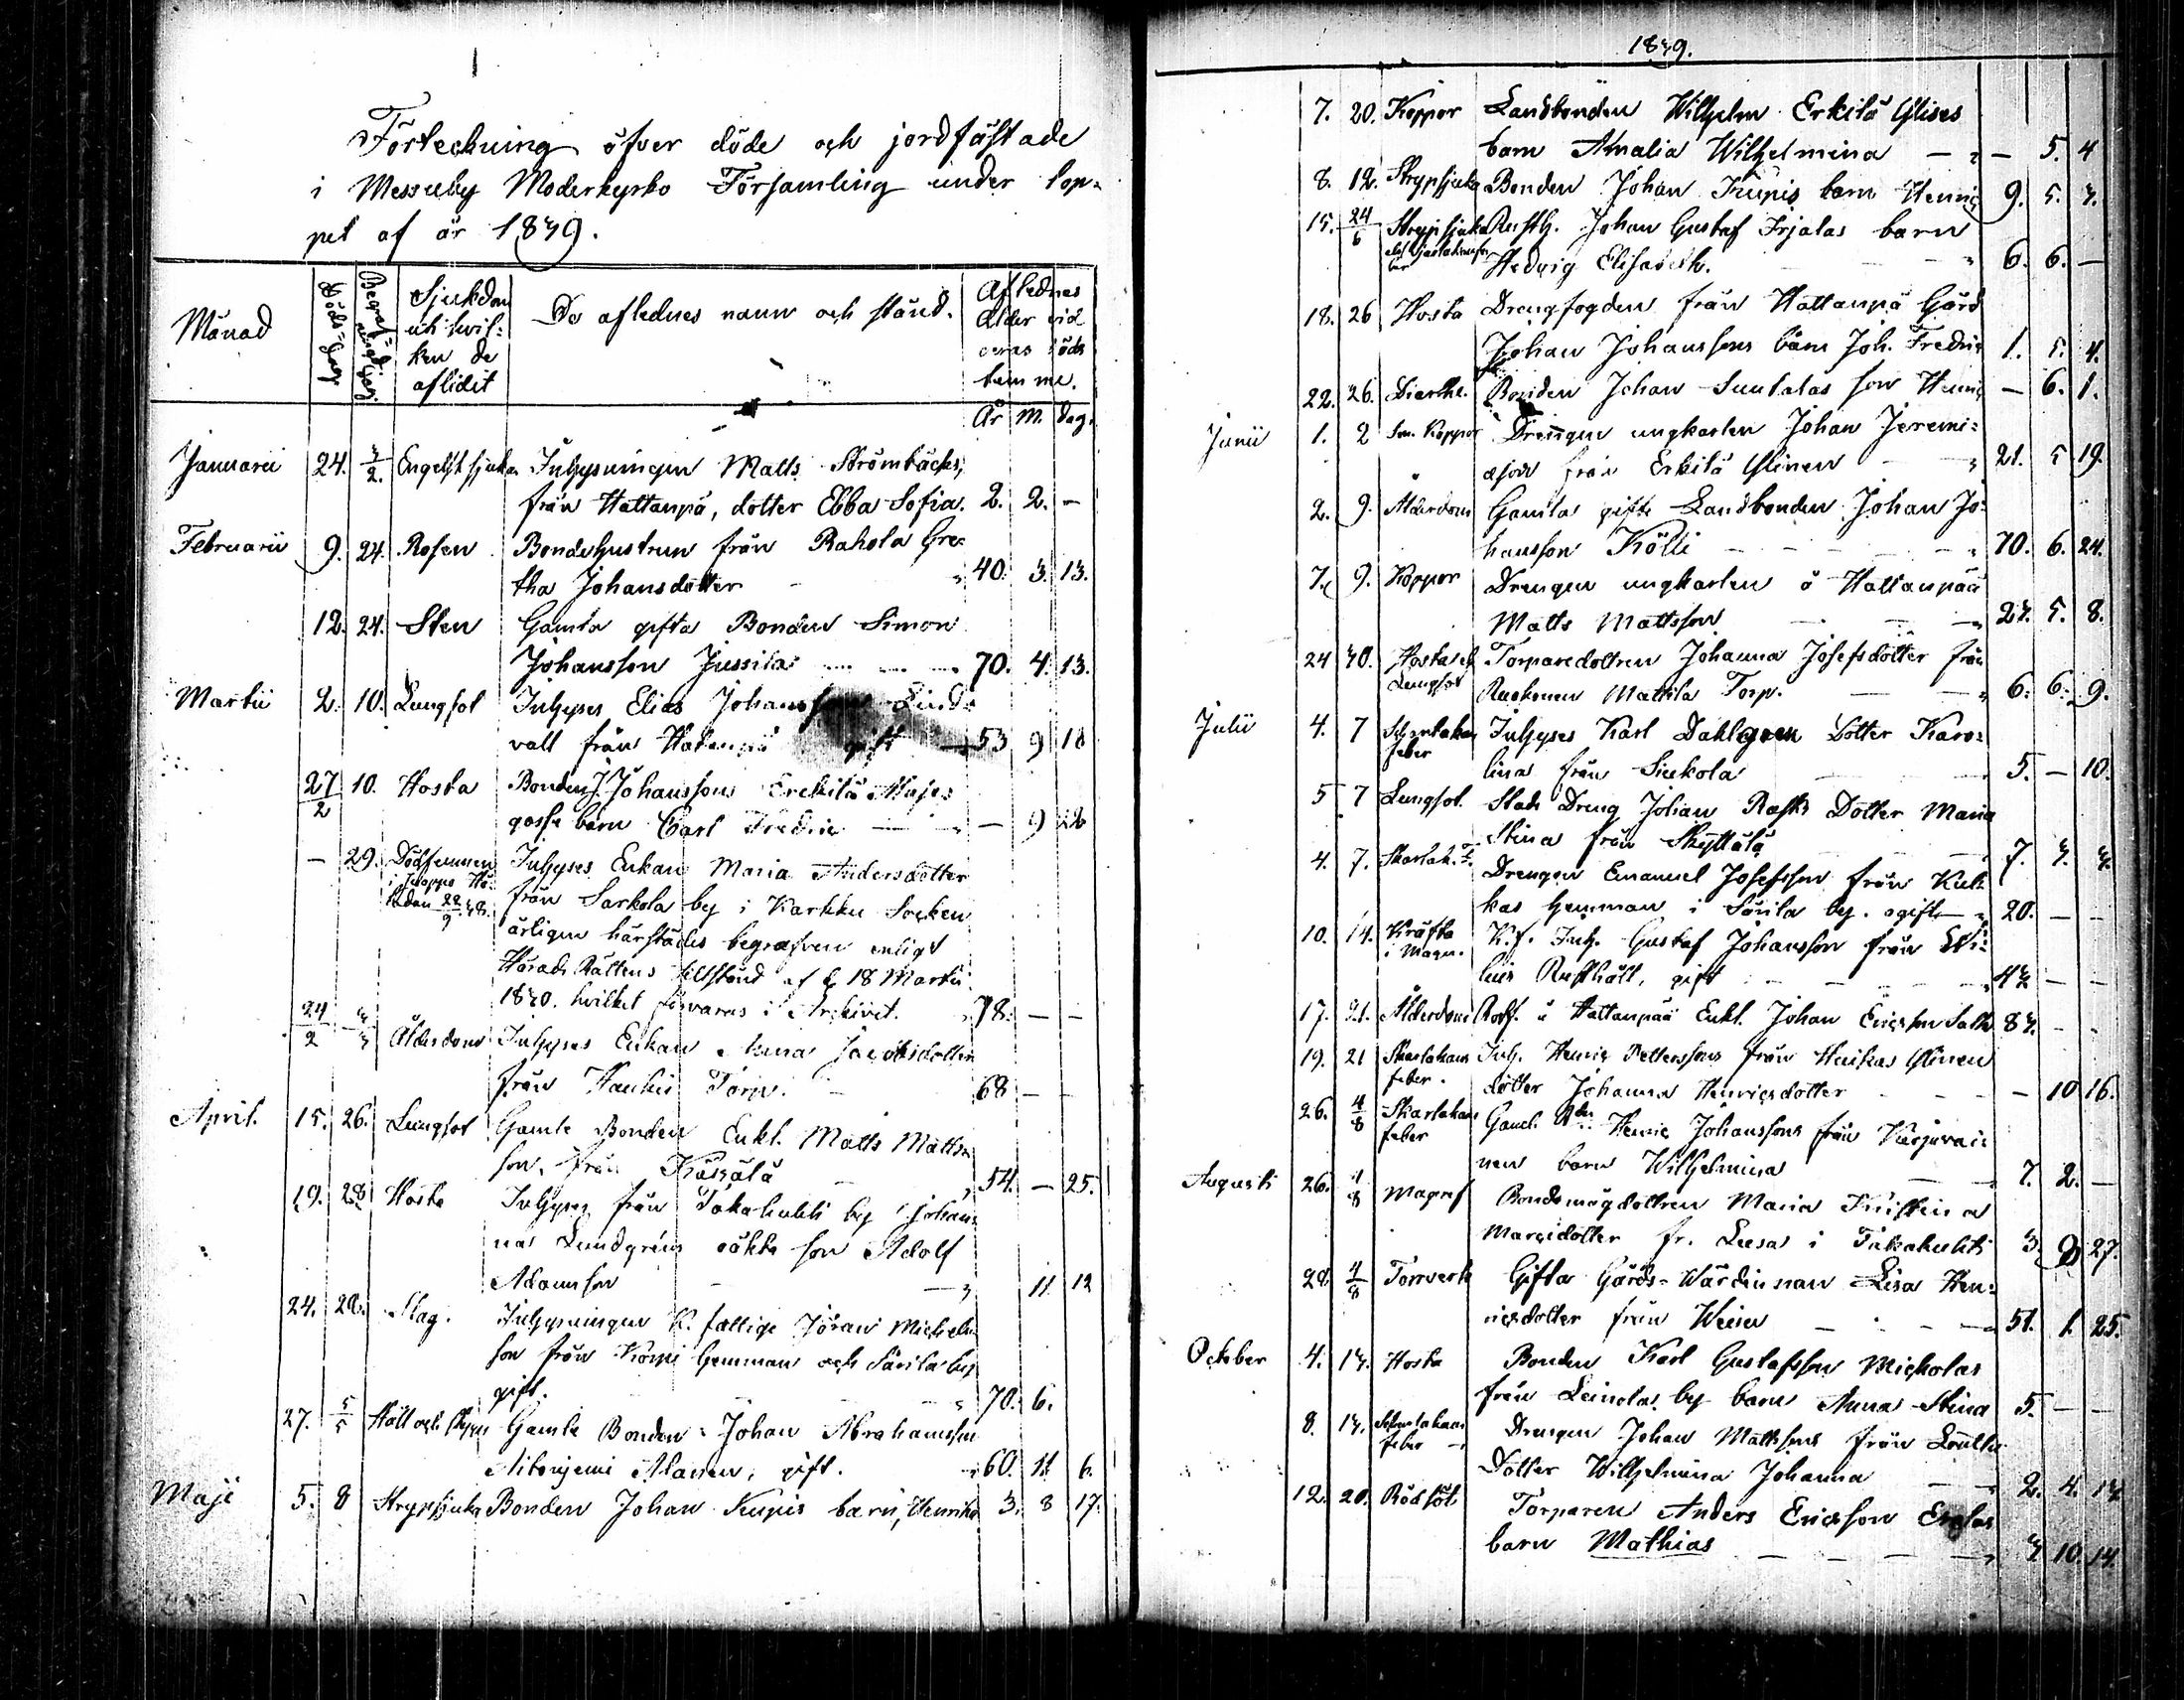 Förteckning öfver döde och jordfästade
i Messuby Moderkyrko Församling under lop-
pet af år 1839.
Månad
Döds-dag
Begrafnings dag
Sjukdom
uti hvil-
ken de
aflidit
De aflednes namn och stånd.
Aflednes
ålder vid
deras döds
timme.
År M. dag.
Januarii 24. 3/2. Engelsk sjuka Inhysningen Matts Strömbäcks,
från Hattanpä, dotter Ebba Sofia. 2. 2. -
Februarii 9. 24. Rosen Bondehustrun från Rahola Gre-
tha Johansdotter 40. 3. 13.
12. 24. Sten Gamla gifta Bonden Simon
Johansson Jussila 70. 4. 13.
Martii 2. 10. Lungsot Inhyses Elias Johansson Lind-
vall från gift 53 9 18
27/2 10. Hosta Bonden J. Johanssons Erckilä
gosse barn Carl Fredric - 9 28
- 29. Dödfunnen Inhyses Enkan Maria Andersdotter
från Sarkola by i Karkku Socken
ärligen härstädes begrafven enligt
Härads Rättens tillstånd af d. 18 Martii
1839. hvilket förvaras i Arkivet. 78. - -
24/2 3/3 Ålderdom Inhyses Enkan Anna Jacobsdotter
från Torp. 68 - -
April. 15. 26. Lungsot Gamle Bonden Enkl. Matts Matts-
son, från 54. - 25.
19. 28 Hosta Inhyses från Takahuhti by Johan-
nas Lundgréns oäkta son Adolf
Adamsson 11 12
24. 28. Slag. Inhysningen K. fattige Jöran Michels-
son från Hemman och Särila by
gift. 70. 6.
27. 5/5 Håll och styng Gamle Bonden Johan Abrahamsson
Aitoniemi Alanen, gift. 60. 11 6.
Maji 5. 8 Strypsjuka Bonden Johan barn, 3. 8 17.
1839.
7. 20. Koppor Landbonden Wilhelm Erkilä Ylises
barn Amalia Wilhelmina - 5. 4
8. 12. Strypsjuka Bonden Johan barn Henric 9. 5. 3.
15. 24/6 Strypsjuka Rusth. Johan Gustaf Irjalas barn
Hedvig Elisabeth. 6. 6. -
18. 26 Hosta Drengfogden från Hattanpä Gård
Johan Johanssons barn Joh. Fredric 1. 5. 4.
22. 26. Bonden Johan son Henric - 6. 1.
Junii 1. 2 Sm. Koppor Drengen ungkarlen Johan Jeremi-
ason från Erkilä Ylinen 21. 5 19.
2. 9. Ålderdom Gamla gifte Landbonden Johan Jo-
hansson Kölli 70. 6. 24.
7. 9. Koppor Drengen ungkarlen å Hattanpää
Matts Mattsson 23. 5. 8.
24 30. Hosta och
Lungsot Torparedottren Johanna Josefsdotter från
Mattila Torp. 6. 6. 9.
Julii 4. 7 Scharlakans
feber Inhyses Karl Dahlgren Dotter Karo-
lina från Siukola 5. - 10.
5 7 Lungsot. Stads Dreng Johan Rasks Dotter Maria
Stina från Skyttälä 7. 3. 3.
4. 7. Skarlak. F. Drengen Emanuel Josefsson från
kas Hemman i Särila by. ogift 20. - -
10. 14. Kräfta
i Magen. K.f. Inh. Gustaf Johansson från
Rusthåll, gift 43 - -
17. 21. Ålderdom Rotf. å Hattanpää Enkl. Johan Ericsson 83. - -
19. 21 Skarlakans
feber. Inh. Henric Petterssons från Ylinen
dotter Johanna Henricsdotter - 10 16.
26. 4/8 Skarlakans
feber Henric Johanssons från
nen barn Wilhelmina 7. 2. -
Augusti 26. 4/8 Bondemågdottren Maria Kristina
dotter fr. Lusa i Takahuhti 3. 9 27.
28. 4/8 Torrverk Gifta Gårds-Wärdinnan Lisa Hen-
ricsdotter från 51. 1. 25.
October 4. 13. Hosta Bonden Karl Gustafsson
från Leinola by barn Anna Stina 5. - -
8. 13. Scharlakans
feber Drengen Johan Mattsons från
Dotter Wilhelmina Johanna 2. 4. 13.
12. 20. Rödsot Torparen Anders Ericsson
barn Mathias 3 10 14